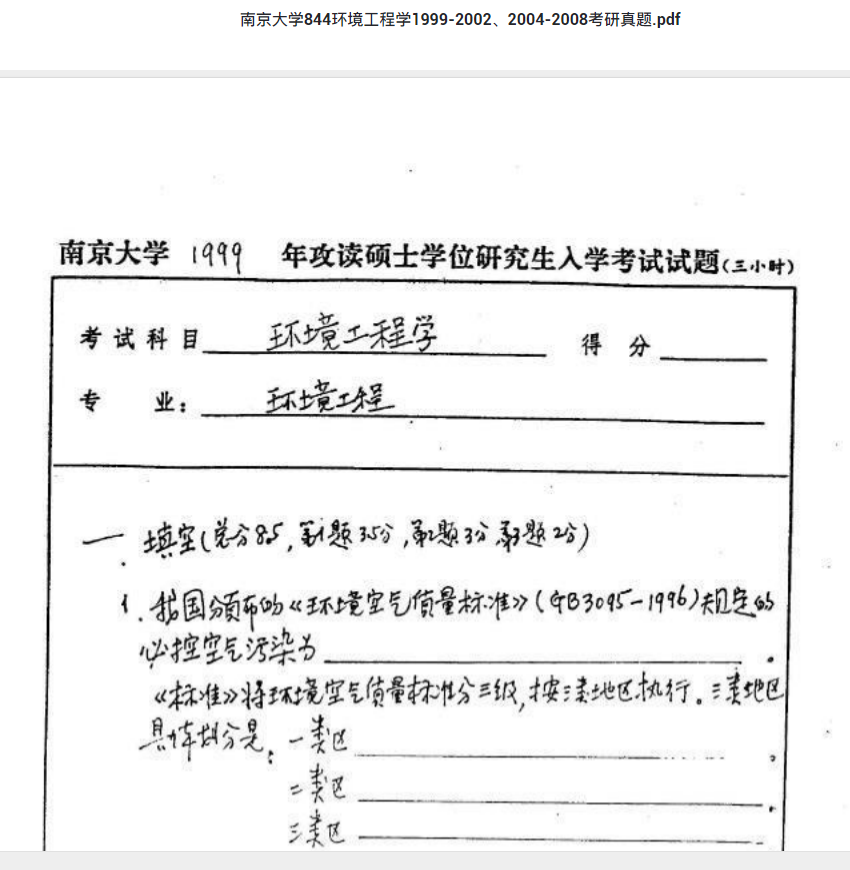 南京大学844环境工程学1999-2002、2004-2008考研真题.pdf
南京大学 1999 年攻读硕士学位研究生入学考试试题(三小时)
考试科目 环境工程学 得分
专业: 环境工程
一. 填空(总分8.5, 第1题3.5分, 第2题3分, 第3题2分)
1. 我国颁布的《环境空气质量标准》(GB3095-1996)规定的
必控空气污染为 。
《标准》将环境空气质量标准分三级,按三类地区执行。三类地区
具体划分是: 一类区 ,
二类区 ,
三类区